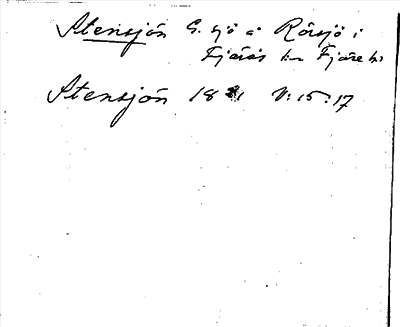 Stensjön G. sjö å Rörsjö i
Fjärås sn Fjäre hd
Stensjön 18 V: 15: 17